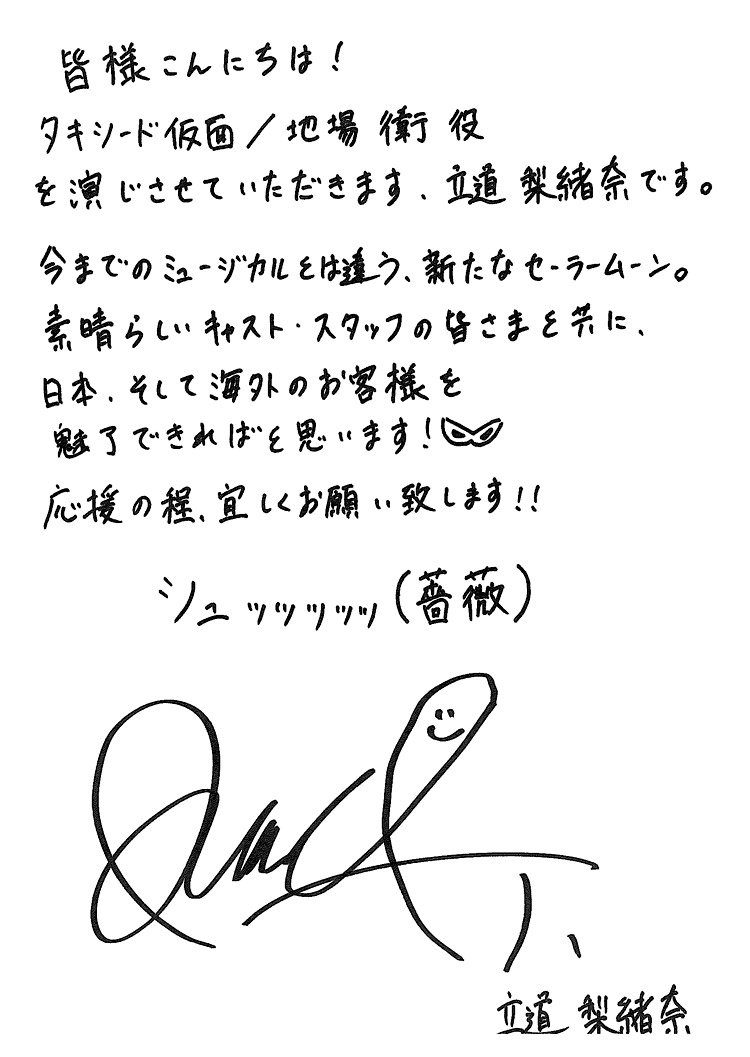 皆様こんにちは！
タキシード仮面／地場 衛 役
を演じさせていただきます、立道 梨緒奈です。
今までのミュージカルとは違う、新たなセーラームーン。
素晴らしいキャスト・スタッフの皆さまと共に、
日本、そして海外のお客様を
魅了できればと思います！
応援の程、宜しくお願い致します！！
シュッッッッッ（薔薇）
立道 梨緒奈